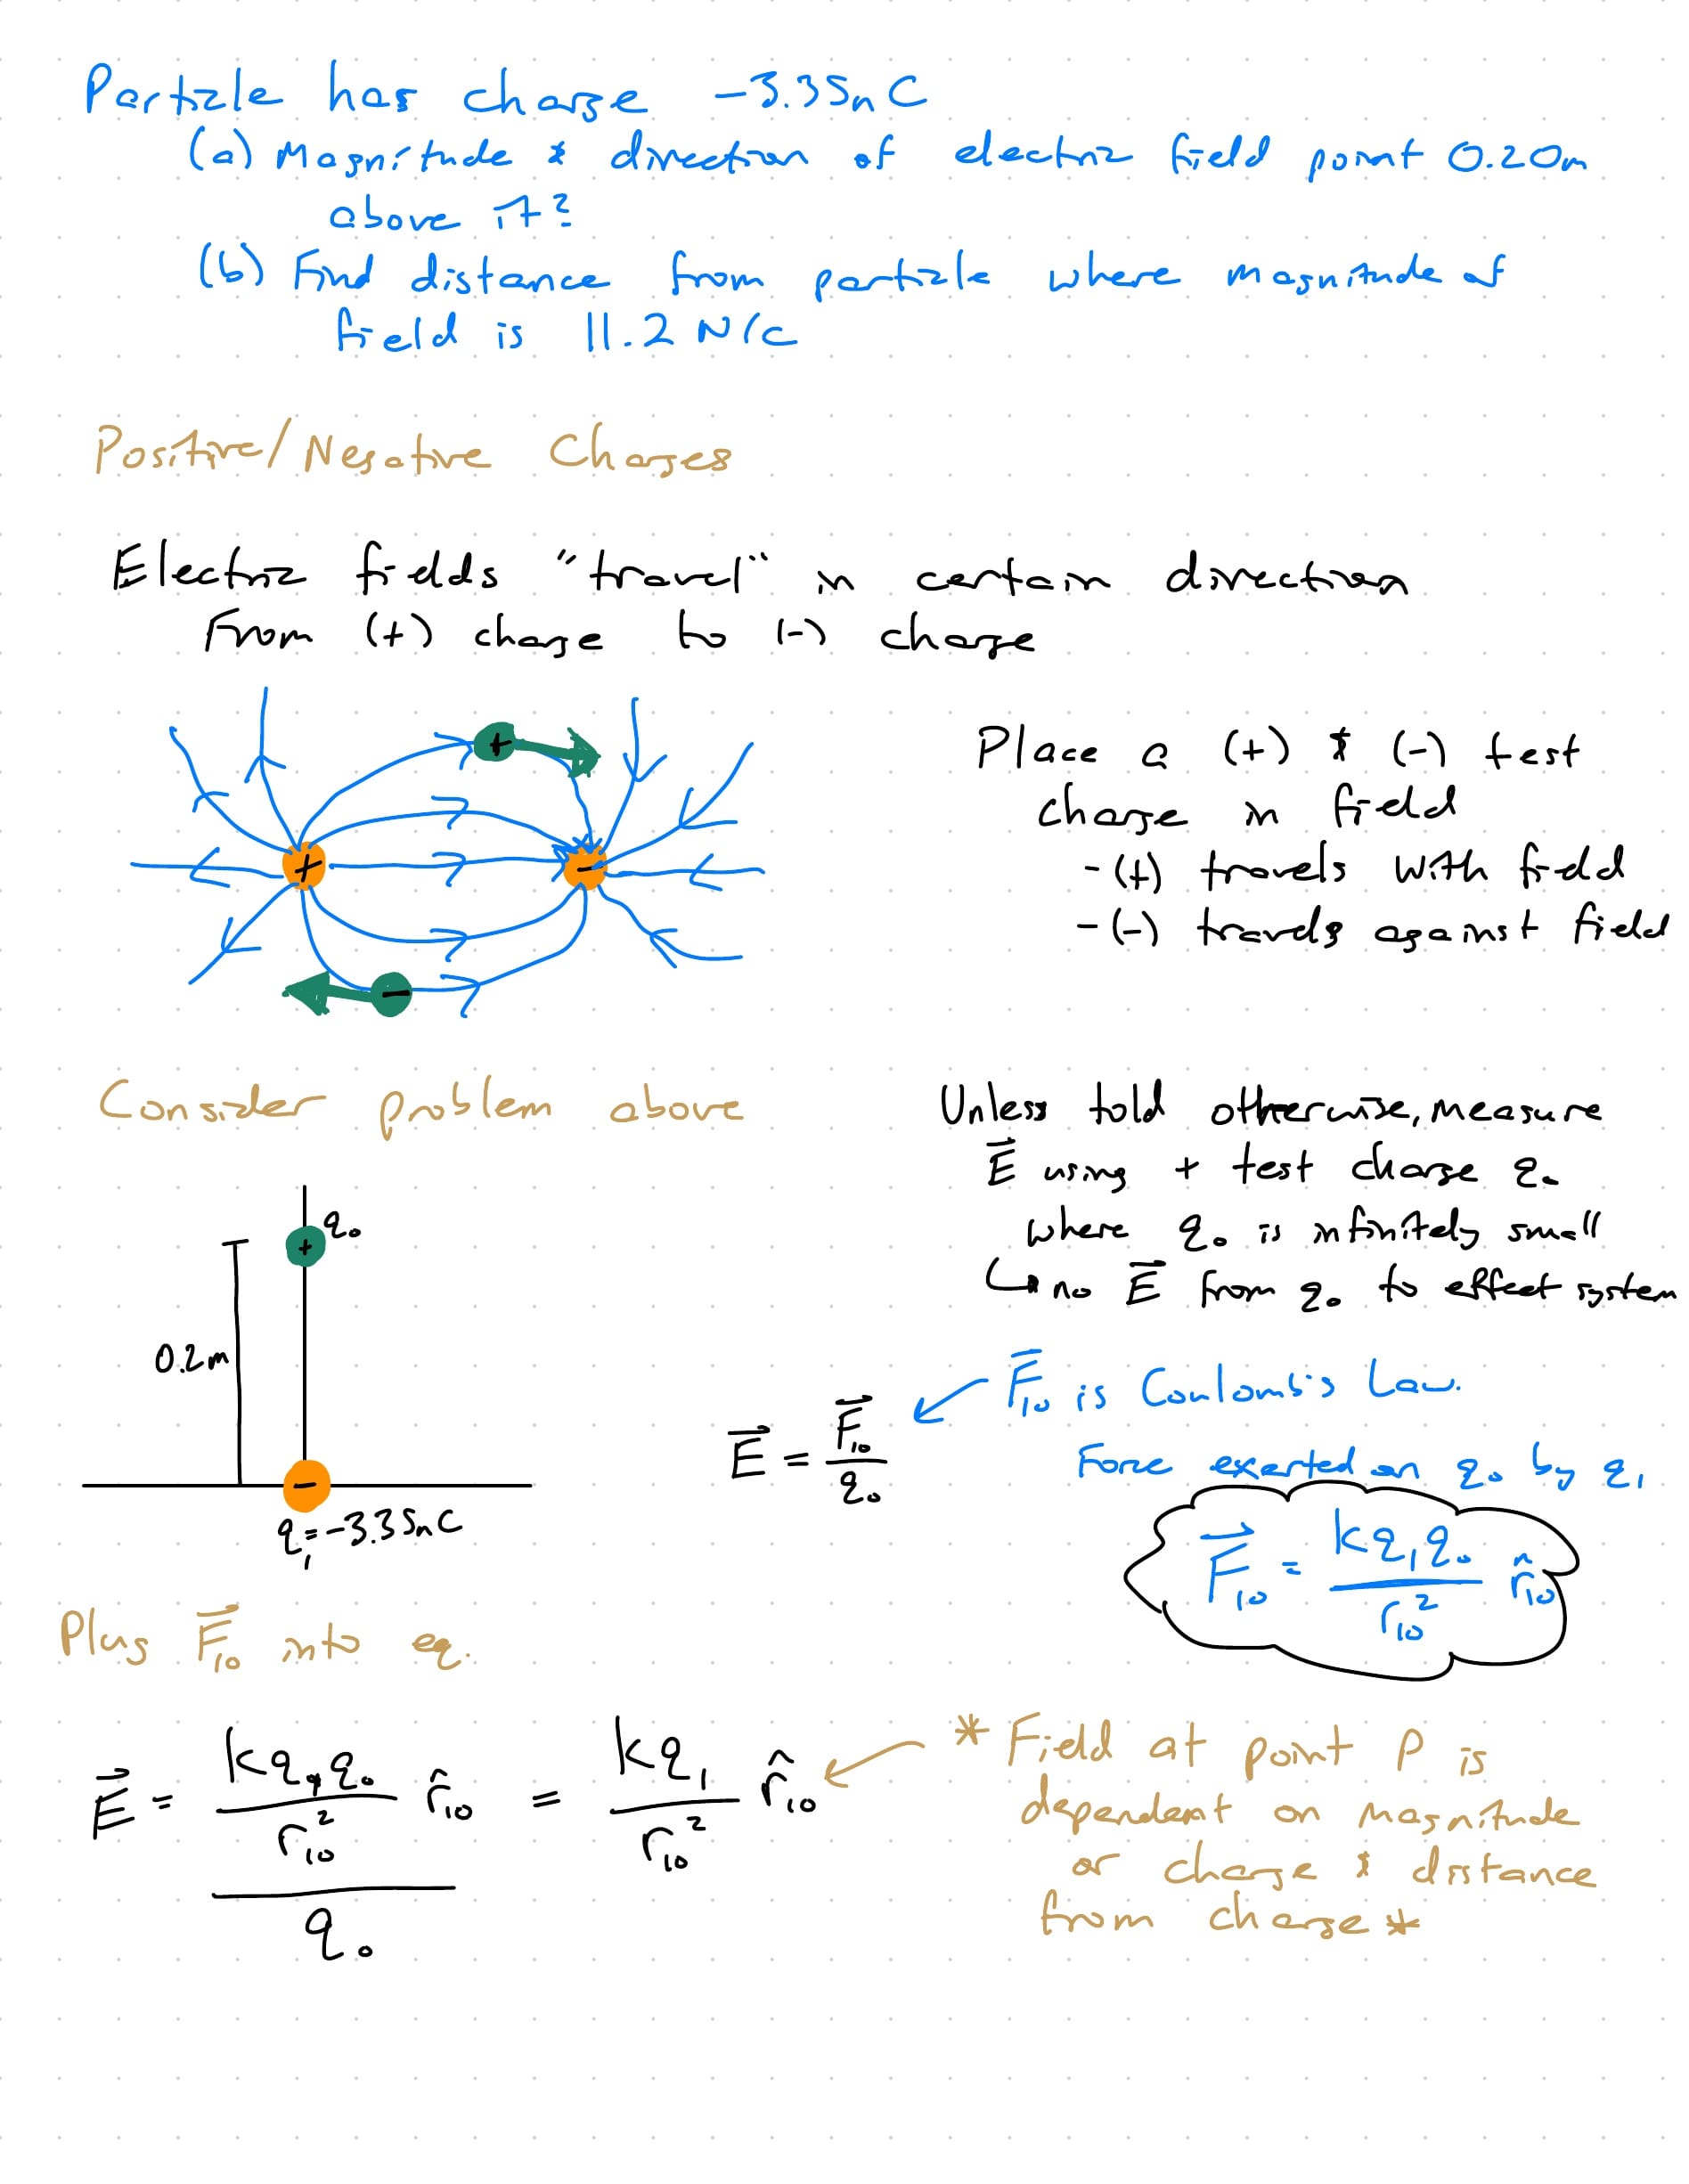 Particle has charge -3.35nC
(a) Magnitude & direction of electric field point 0.20m
above it?
(b) Find distance from particle where magnitude of
field is 11.2 N/C
Positive/Negative Charges
Electric fields "travel" in certain direction
From (+) charge to (-) charge
+
+
-
-
Place a (+) & (-) test
charge in field
-(+) travels with field
-(-) travels against field
Consider problem above
Unless told otherwise, measure
E⃗ using + test charge q₀
where q₀ is infinitely small
↳ no E⃗ from q₀ to effect system
q₀
+
0.2m
-
q₁=-3.35nC
E⃗ = F⃗₁₀/q₀
F⃗₁₀ is Coulomb's Law.
Force exerted on q₀ by q₁
F⃗₁₀ = kq₁q₀/r₁₀² r̂₁₀
Plug F⃗₁₀ into eq.
E⃗ = (kq₁q₀/r₁₀² r̂₁₀)/q₀ = kq₁/r₁₀² r̂₁₀
* Field at point P is
dependent on magnitude
or charge & distance
from charge *